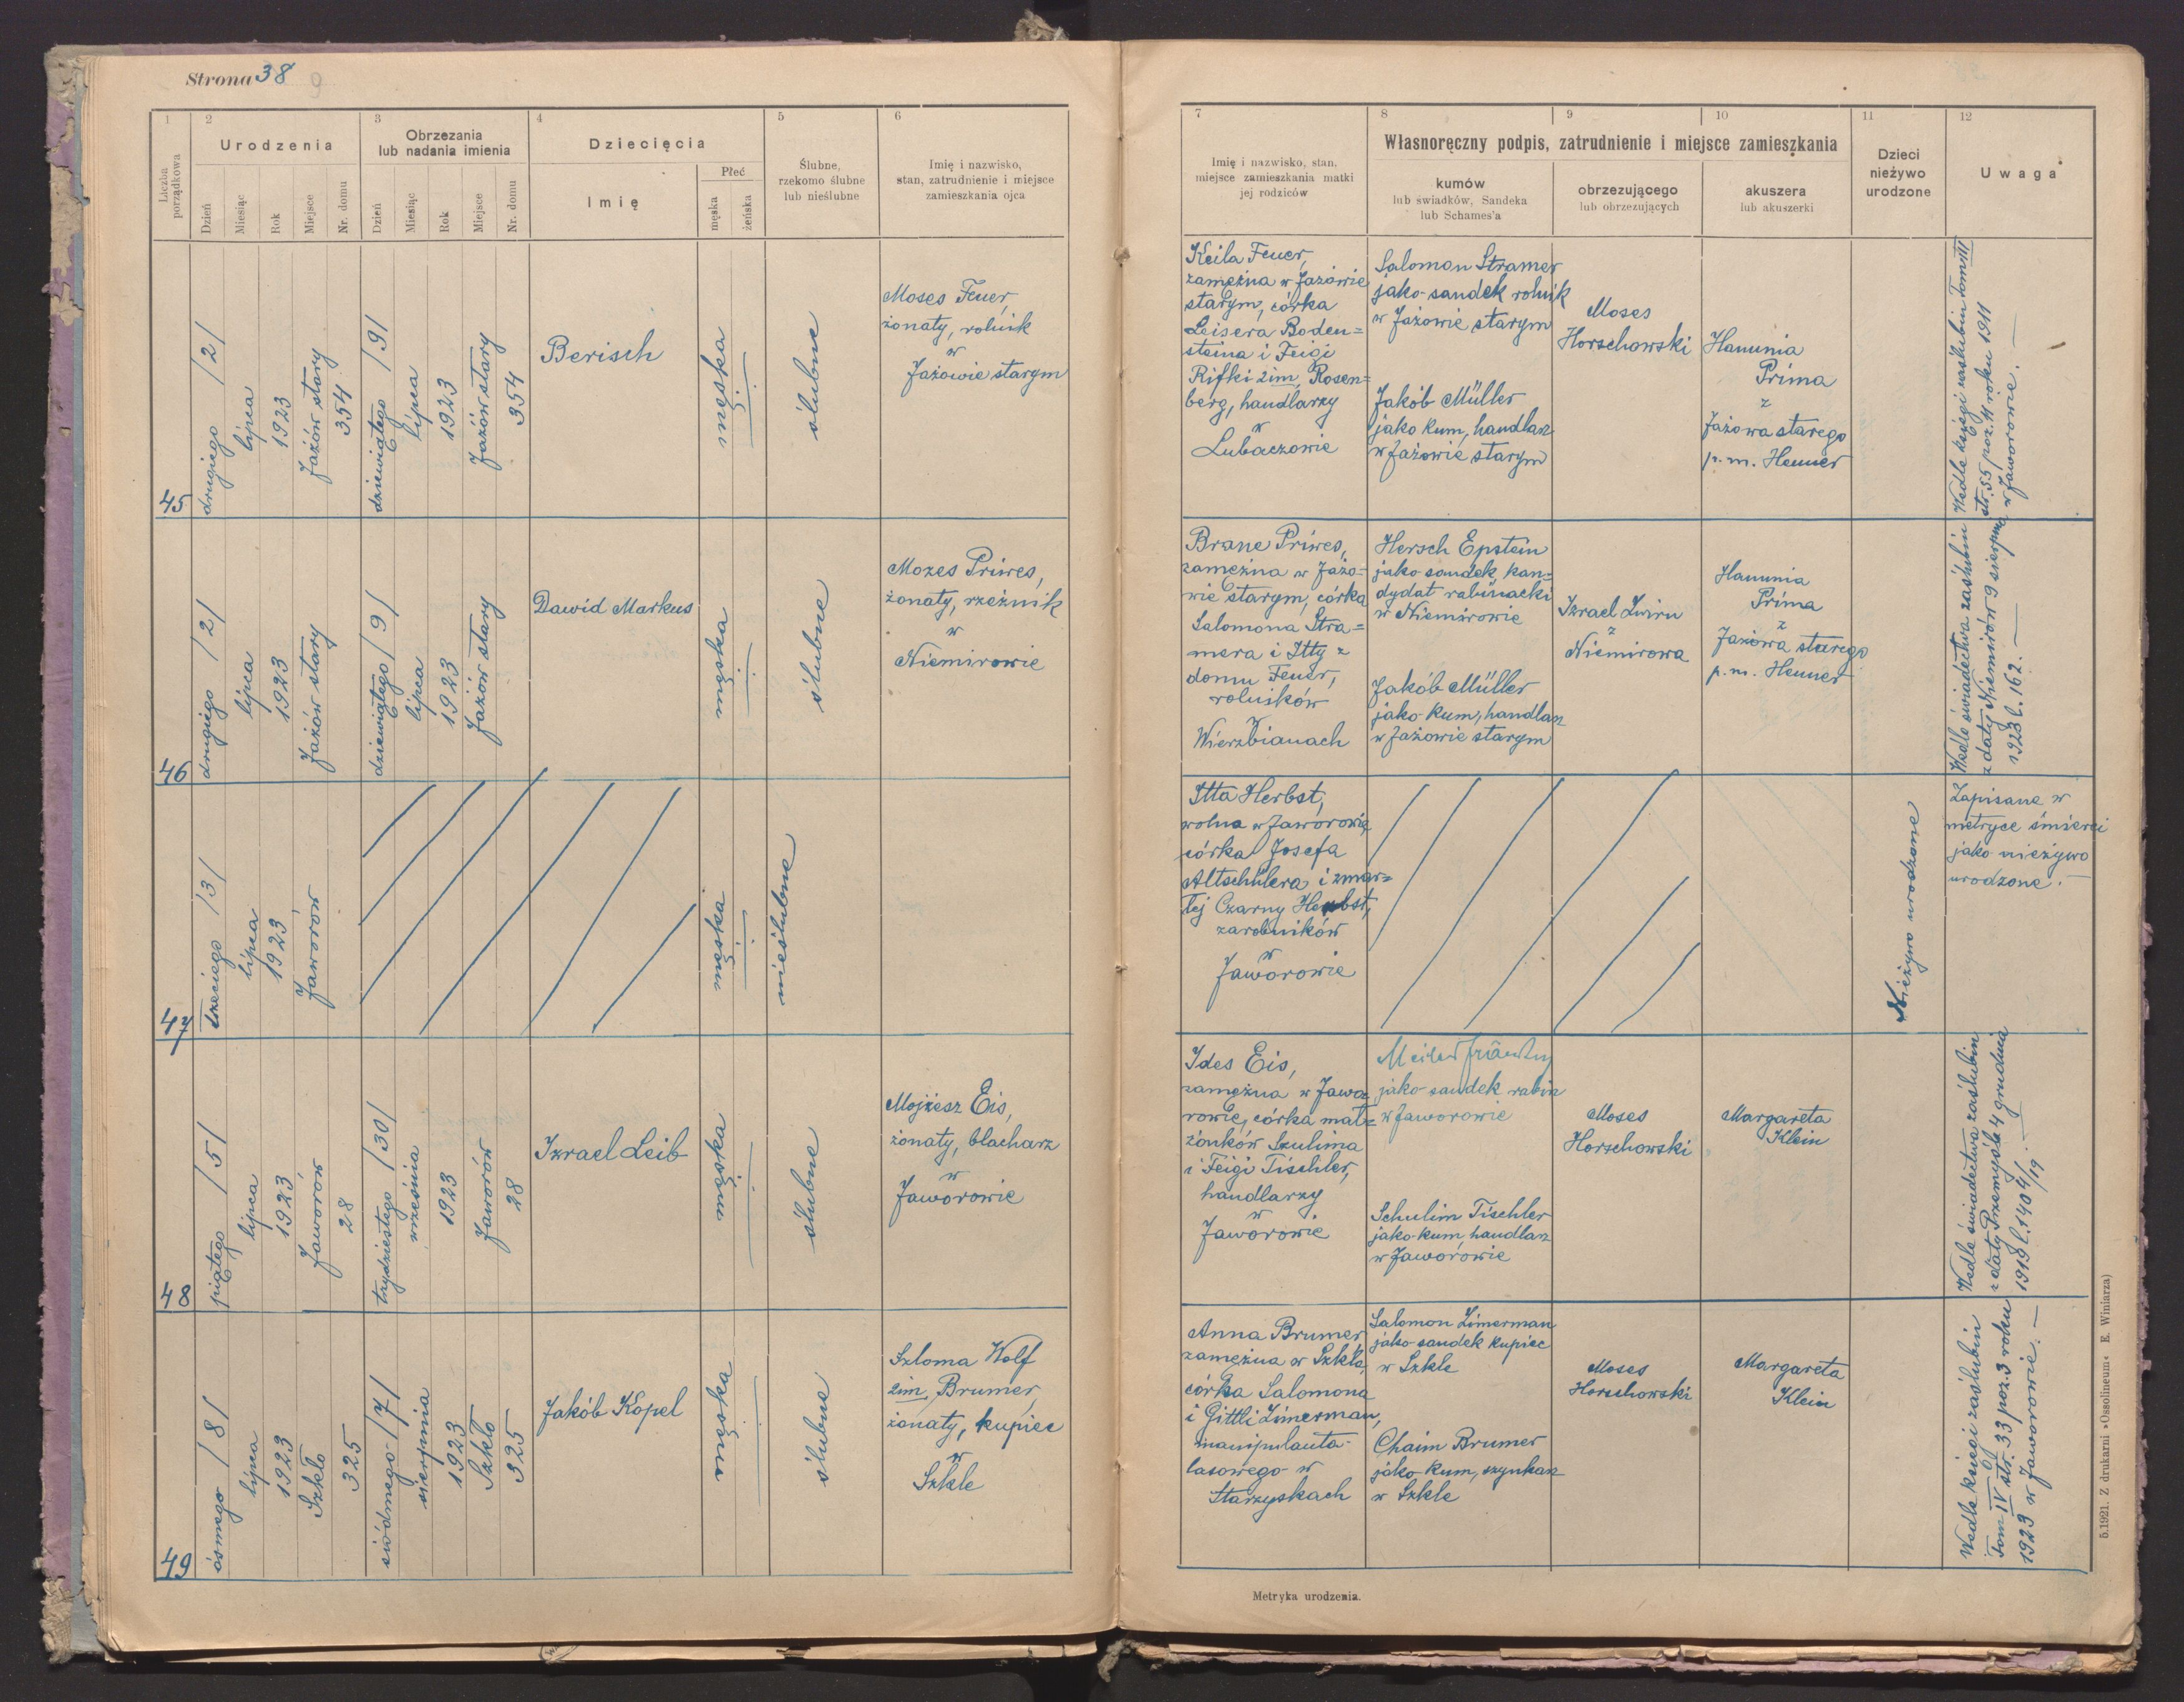 Strona 38
9
1
2
3
4
5
6
Liczba
porządkowa
Urodzenia
Obrzezania
lub nadania imienia
Dziecięcia
Ślubne,
rzekomo ślubne
lub nieślubne
Imię i nazwisko,
stan, zatrudnienie i miejsce
zamieszkania ojca
Dzień
Miesiąc
Rok
Miejsce
Nr. domu
Dzień
Miesiąc
Rok
Miejsce
Nr. domu
Imię
Płeć
męska
żeńska
7
8
9
10
11
12
Imię i nazwisko, stan,
miejsce zamieszkania matki
jej rodziców
Własnoręczny podpis, zatrudnienie i miejsce zamieszkania
kumów
lub świadków, Sandeka
lub Schames'a
obrzezującego
lub obrzezujących
akuszera
lub akuszerki
Dzieci
nieżywo
urodzone
Uwaga
45
drugiego /2/
lipca
1923
Jażów stary
354
dziewiątego /9/
lipca
1923
Jażów stary
354
Berisch
męska
ślubne
Moses Feuer,
żonaty, rolnik
w
Jażowie starym
Keila Feuer,
zamężna w Jażowie
starym, córka
Leisera Boden=
steina i Feigi
Rifki 2im. Rosen=
berg, handlarzy
w
Lubaczowie
Salomon Stramer
jako sandek rolnik
w Jażowie starym
Jakób Müller
jako kum, handlarz
w Jażowie starym
Moses
Horschowski
Hanunia
Prima
z
Jażowa starego
p. m. Henner
Wedle księgi zaślubin Tom III
str. 55 poz. 14 roku 1911
w Jaworowie. —
46
drugiego /2/
lipca
1923
Jażów stary
dziewiątego /9/
lipca
1923
Jażów stary
Dawid Markus
męska
ślubne
Mozes Priwes,
żonaty, rzeźnik
w
Niemirowie
Brane Priwes,
zamężna w Jażo=
wie starym, córka
Salomona Stra=
mera i Itty z
domu Feuer,
rolników
w
Wierzbianach
Hersch Epstein
jako sandek kan=
dydat rabinacki
w Niemirowie
Jakób Müller
jako kum, handlarz
w Jażowie starym
Izrael Zwirn
z
Niemirowa
Hanunia
Prima
z
Jażowa starego
p. m. Henner
Wedle świadectwa zaślubin
z daty Niemirów 9 sierpnia
1923 l. 162. —
47
trzeciego /3/
lipca
1923
Jaworów
męska
nieślubne
Itta Herbst,
wolna w Jaworowie
córka Josefa
Altschülera i zmar=
łej Czarny Herbst,
zarobników
w
Jaworowie
Nieżywo urodzone
Zapisane w
metryce śmierci
jako nieżywo
urodzone. —
48
piątego /5/
lipca
1923
Jaworów
28
trzydziestego /30/
września
1923
Jaworów
28
Izrael Leib
męska
ślubne
Mojżesz Eis,
żonaty, blacharz
w
Jaworowie
Ides Eis,
zamężna w Jawo
rowie, córka mał=
żonków Szulima
i Feigi Tischler,
handlarzy
w
Jaworowie
jako sandek rabin
w Jaworowie
Schulim Tischler
jako kum, handlarz
w Jaworowie
Moses
Horschowski
Margareta
Klein
Wedle świadectwa zaślubin
z daty Przemyśl 4 grudnia
1919 l. 1404/19. —
49
ósmego /8/
lipca
1923
Szkło
325
siódmego /7/
sierpnia
1923
Szkło
325
Jakób Kopel
męska
ślubne
Szloma Wolf
2im. Brumer,
żonaty, kupiec
w
Szkle
Anna Brumer
zamężna w Szkle,
córka Salomona
i Gittli Zimerman,
manipulanta
lasowego w
Starzyskach
Salomon Zimerman
jako sandek kupiec
w Szkle
Chaim Brumer
jako kum, szynkarz
w Szkle
Moses
Horschowski
Margareta
Klein
Wedle księgi zaślubin
Tom IV str. 33 poz. 3 roku
1923 w Jaworowie. —
Metryka urodzenia.
5.1921. Z drukarni »Ossolineum« E. Winiarza)